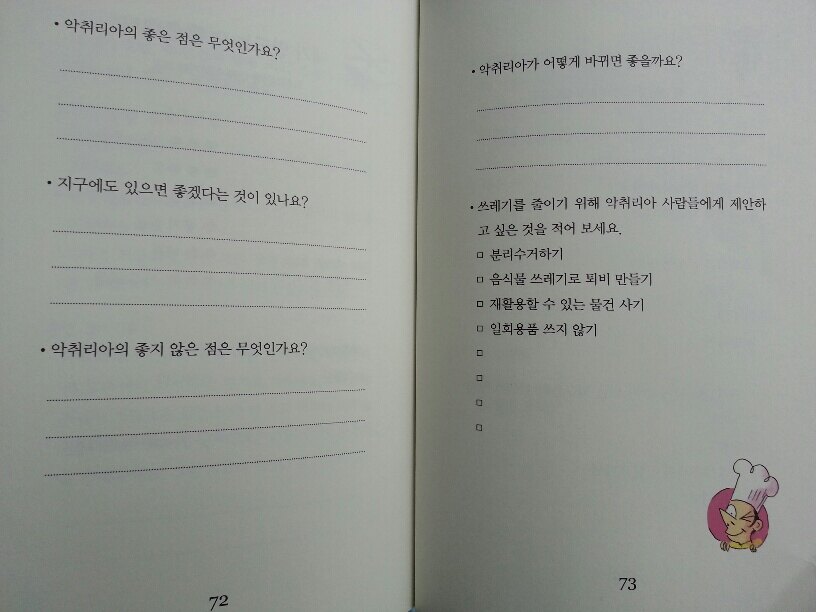 • 악취리아의 좋은 점은 무엇인가요?
• 지구에도 있으면 좋겠다는 것이 있나요?
• 악취리아의 좋지 않은 점은 무엇인가요?
72
• 악취리아가 어떻게 바뀌면 좋을까요?
• 쓰레기를 줄이기 위해 악취리아 사람들에게 제안하
고 싶은 것을 적어 보세요.
□ 분리수거하기
□ 음식물 쓰레기로 퇴비 만들기
□ 재활용할 수 있는 물건 사기
□ 일회용품 쓰지 않기
□
□
□
□
73